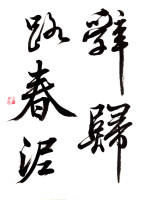 辭歸
路春泥